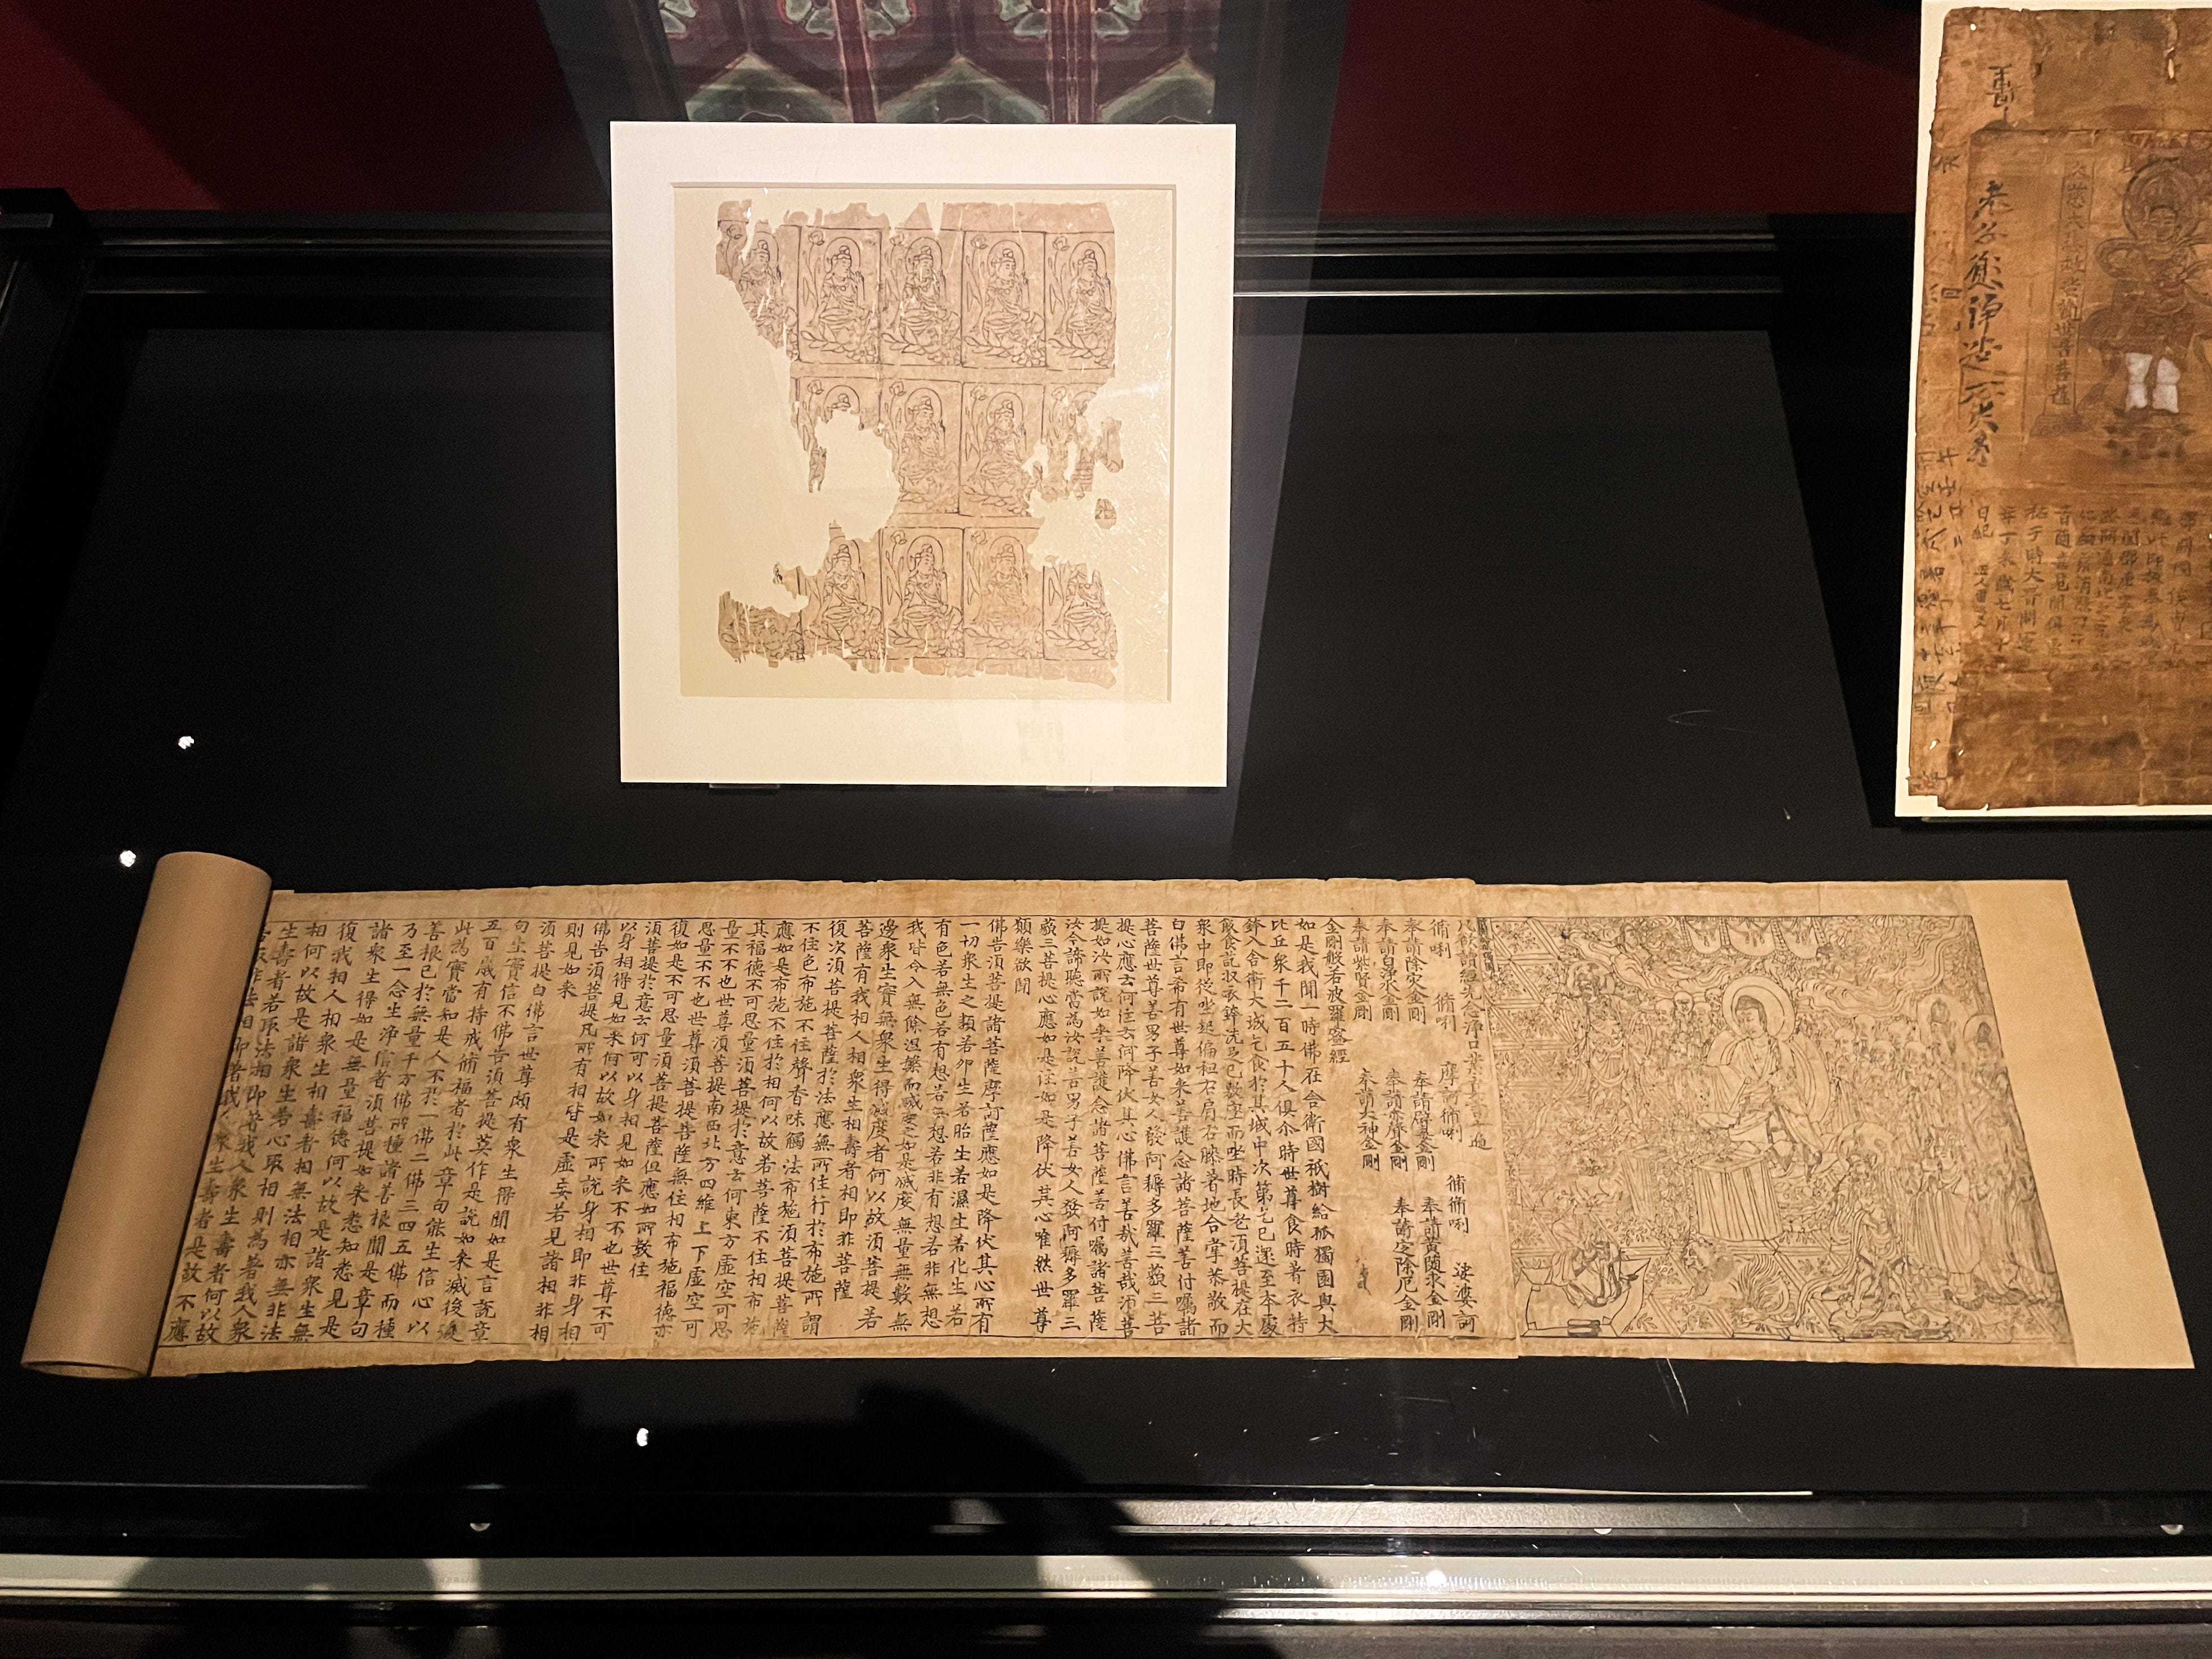 凡欲讀經先念淨口業真言一遍
脩唎 脩唎 摩訶脩唎 脩脩唎 娑婆訶
奉請除災金剛 奉請辟毒金剛 奉請黃隨求金剛
奉請白淨水金剛 奉請赤聲金剛 奉請定除厄金剛
奉請紫賢金剛 奉請大神金剛
金剛般若波羅蜜經
如是我聞一時佛在舍衛國祇樹給孤獨園與大
比丘衆千二百五十人俱尒時世尊食時著衣持
鉢入舍衛大城乞食於其城中次第乞已還至本處
飯食訖収衣鉢洗足已敷座而坐時長老須菩提在大
衆中即從坐起偏袒右肩右膝著地合掌恭敬而
白佛言希有世尊如來善護念諸菩薩善付囑諸
菩薩世尊善男子善女人發阿耨多羅三藐三菩
提心應云何住云何降伏其心佛言善哉善哉須菩
提如汝所說如來善護念諸菩薩善付囑諸菩薩
汝今諦聽當為汝說善男子善女人發阿耨多羅三
藐三菩提心應如是住如是降伏其心唯然世尊
願樂欲聞
佛告須菩提諸菩薩摩訶薩應如是降伏其心所有
一切衆生之類若卵生若胎生若濕生若化生若
有色若無色若有想若無想若非有想若非無想
我皆令入無餘涅槃而滅度之如是滅度無量無數無
邊衆生實無衆生得滅度者何以故須菩提若
菩薩有我相人相衆生相壽者相即非菩薩
復次須菩提菩薩於法應無所住行於布施所謂
不住色布施不住聲香味觸法布施須菩提菩薩
應如是布施不住於相何以故若菩薩不住相布施
其福德不可思量須菩提於意云何東方虛空可思
量不不也世尊須菩提南西北方四維上下虛空可
思量不不也世尊須菩提菩薩無住相布施福德亦
復如是不可思量須菩提菩薩但應如所教住
須菩提於意云何可以身相見如來不不也世尊不可
以身相得見如來何以故如來所說身相即非身相
佛告須菩提凡所有相皆是虛妄若見諸相非相
則見如來
須菩提白佛言世尊頗有衆生得聞如是言說章
句生實信不佛告須菩提莫作是說如來滅後後
五百歲有持戒脩福者於此章句能生信心以
此為實當知是人不於一佛二佛三四五佛而種
善根已於無量千万佛所種諸善根聞是章句
乃至一念生淨信者須菩提如來悉知悉見是
諸衆生得如是無量福德何以故是諸衆生無
復我相人相衆生相壽者相無法相亦無非法
相何以故是諸衆生若心取相則為著我人衆
生壽者若取法相即著我人衆生壽者何以故
若取非法相即著我人衆生壽者是故不應